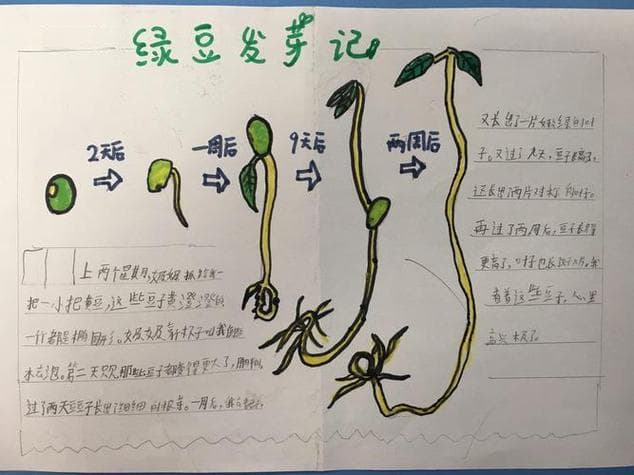 绿豆发芽记
2天后
一周后
9天后
两周后
上两个星期,
把一小把黄豆,这些豆子黄澄澄的
一个都是椭圆形。奶奶拿杯子叫我用
水去泡。第二天只见那些豆子都变得更大了,
过了两天豆子长出了细细的根芽。一周后,我
又长出了一片嫩绿的叶
子。又过了九天,豆子长高了,
还长出了两片对称的叶子。
再过了两周后,豆子长得
更高了,叶子也长大了。我
看着这些豆子,心里
高兴极了。